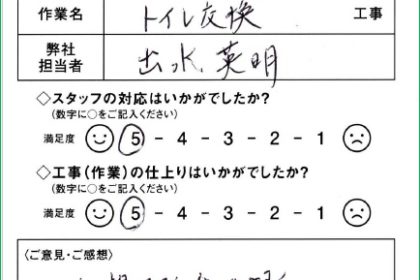 作業名 トイレ交換 工事
弊社担当者 出水 英明
◇スタッフの対応はいかがでしたか?
(数字に○をご記入ください)
満足度 5 - 4 - 3 - 2 - 1
◇工事(作業)の仕上りはいかがでしたか?
(数字に○をご記入ください)
満足度 5 - 4 - 3 - 2 - 1
〈ご意見・ご感想〉